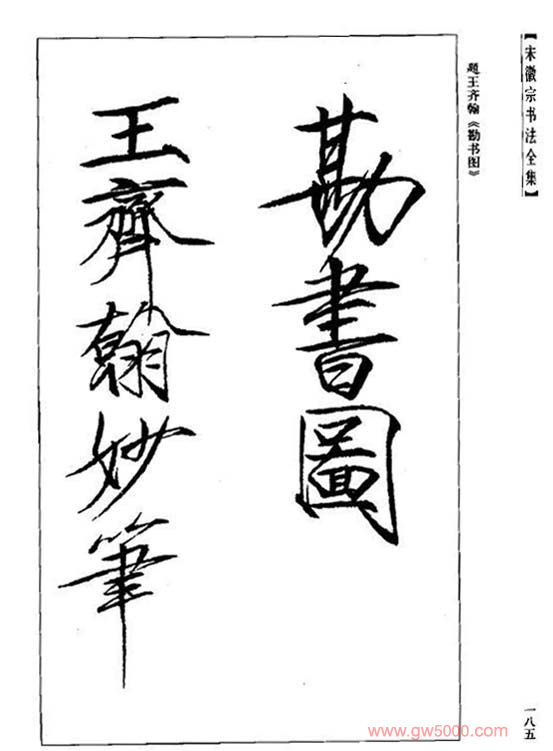 【宋徽宗书法全集】
题王齐翰《勘书图》
勘書圖
王齊翰妙筆
一八五
www.gw5000.com